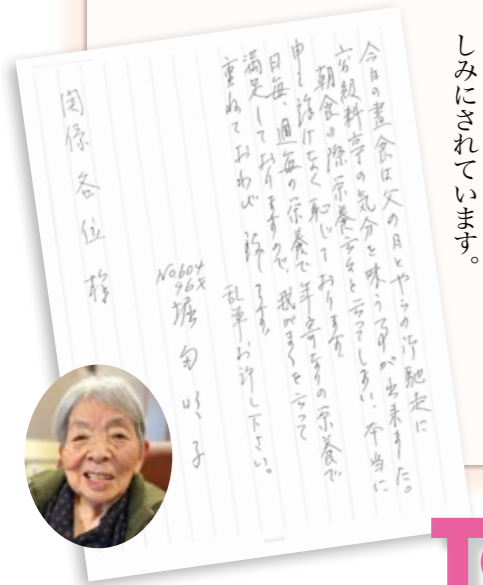 しみにされています。
今日の昼食は父の日とやらの御馳走に
高級料亭の気分を味うる事が出来ました。
朝食の際栄養云々と云ってしまい、本当に
申し訳けなく恥じております
日毎、週毎の栄養で年寄なりの栄養で
満足しておりますので、我がまゝを云って
重ねておわび致します。
乱筆お許し下さい。
No.604
96才
堀
子
関係各位様
T